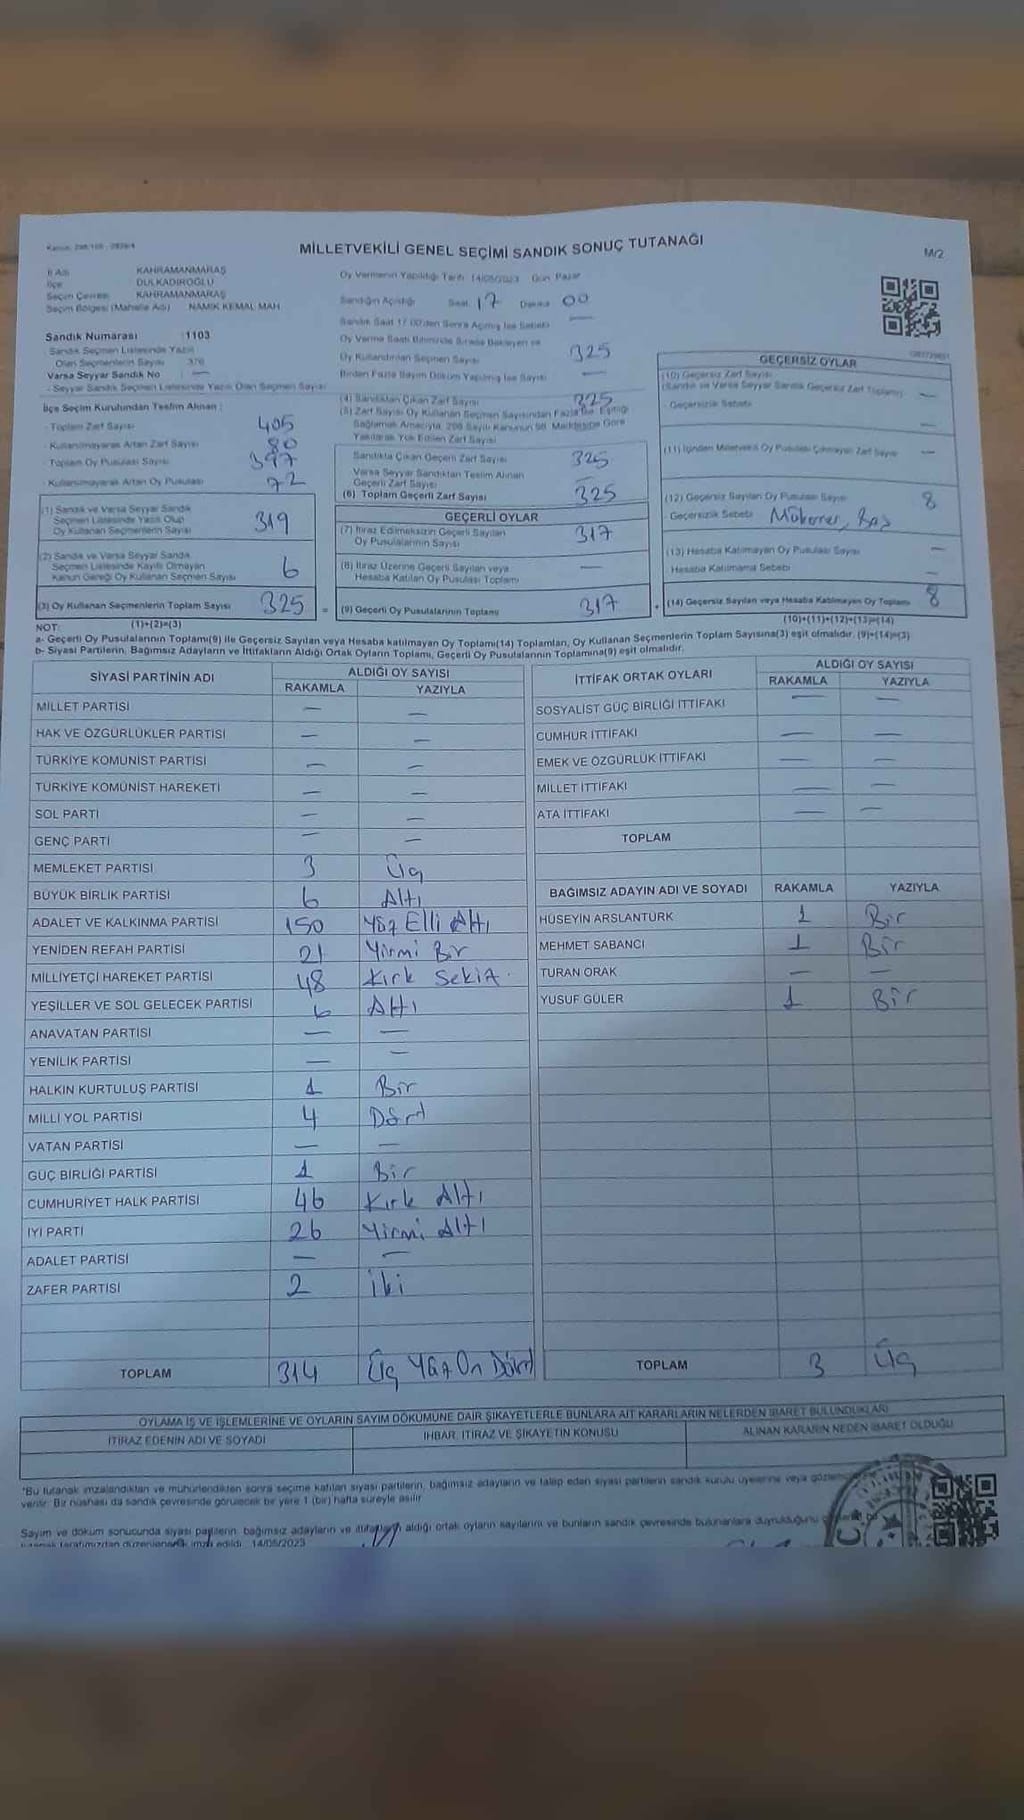 MİLLETVEKİLİ GENEL SEÇİMİ SANDIK SONUÇ TUTANAĞI
M/2
İl Adı KAHRAMANMARAŞ
İlçe DULKADİROĞLU
Seçim Çevresi KAHRAMANMARAŞ
Seçim Bölgesi (Mahalle Adı) NAMIK KEMAL MAH
Oy Vermenin Yapıldığı Tarih 14/05/2023 Gün Pazar
Sandığın Açıldığı Saat 17 Dakika 00
Sandık Saat 17:00'den Sonra Açılmış İse Sebebi —
Oy Verme Saati Bitiminde Sırada Bekleyen ve
Oy Kullandırılan Seçmen Sayısı 325
Birden Fazla Sayım Döküm Yapılmış İse Sayısı —
Sandık Numarası 1103
Sandık Seçmen Listesinde Yazılı
Olan Seçmenlerin Sayısı 376
Varsa Seyyar Sandık No —
- Seyyar Sandık Seçmen Listesinde Yazılı Olan Seçmen Sayısı
İlçe Seçim Kurulundan Teslim Alınan :
- Toplam Zarf Sayısı 405
- Kullanılmayarak Artan Zarf Sayısı 80
- Toplam Oy Pusulası Sayısı 397
- Kullanılmayarak Artan Oy Pusulası 72
(1) Sandık ve Varsa Seyyar Sandık
Seçmen Listesinde Yazılı Olup
Oy Kullanan Seçmenlerin Sayısı 319
(2) Sandık ve Varsa Seyyar Sandık
Seçmen Listesinde Kayıtlı Olmayan
Kanun Gereği Oy Kullanan Seçmen Sayısı 6
(3) Oy Kullanan Seçmenlerin Toplam Sayısı 325 =
(1)+(2)=(3)
(4) Sandıktan Çıkan Zarf Sayısı 325
(5) Zarf Sayısı Oy Kullanan Seçmen Sayısından Fazla İse, Eşitliği
Sağlamak Amacıyla, 298 Sayılı Kanunun 98. Maddesine Göre
Yakılarak Yok Edilen Zarf Sayısı
Sandıkta Çıkan Geçerli Zarf Sayısı 325
Varsa Seyyar Sandıktan Teslim Alınan
Geçerli Zarf Sayısı —
(6) Toplam Geçerli Zarf Sayısı 325
GEÇERLİ OYLAR
(7) İtiraz Edilmeksizin Geçerli Sayılan
Oy Pusulalarının Sayısı 317
(8) İtiraz Üzerine Geçerli Sayılan veya
Hesaba Katılan Oy Pusulası Toplamı —
(9) Geçerli Oy Pusulalarının Toplamı 317 +
GEÇERSİZ OYLAR
(10) Geçersiz Zarf Sayısı
(Sandık ve Varsa Seyyar Sandık Geçersiz Zarf Toplamı) —
- Geçersizlik Sebebi —
(11) İçinden Milletvekili Oy Pusulası Çıkmayan Zarf Sayısı —
(12) Geçersiz Sayılan Oy Pusulası Sayısı 8
- Geçersizlik Sebebi
(13) Hesaba Katılmayan Oy Pusulası Sayısı —
Hesaba Katılmama Sebebi —
(14) Geçersiz Sayılan veya Hesaba Katılmayan Oy Toplamı 8
(10)+(11)+(12)+(13)=(14)
NOT:
a- Geçerli Oy Pusulalarının Toplamı(9) ile Geçersiz Sayılan veya Hesaba katılmayan Oy Toplamı(14) Toplamları, Oy Kullanan Seçmenlerin Toplam Sayısına(3) eşit olmalıdır. (9)+(14)=(3)
b- Siyasi Partilerin, Bağımsız Adayların ve İttifakların Aldığı Ortak Oyların Toplamı, Geçerli Oy Pusulalarının Toplamına(9) eşit olmalıdır.
SİYASİ PARTİNİN ADI ALDIĞI OY SAYISI
RAKAMLA YAZIYLA
MİLLET PARTİSİ — —
HAK VE ÖZGÜRLÜKLER PARTİSİ — —
TÜRKİYE KOMÜNİST PARTİSİ — —
TÜRKİYE KOMÜNİST HAREKETİ — —
SOL PARTİ — —
GENÇ PARTİ — —
MEMLEKET PARTİSİ 3 Üç
BÜYÜK BİRLİK PARTİSİ 6 Altı
ADALET VE KALKINMA PARTİSİ 150 Yüz Elli Altı
YENİDEN REFAH PARTİSİ 21 Yirmi Bir
MİLLİYETÇİ HAREKET PARTİSİ 48 Kırk Sekiz
YEŞİLLER VE SOL GELECEK PARTİSİ 6 Altı
ANAVATAN PARTİSİ — —
YENİLİK PARTİSİ — —
HALKIN KURTULUŞ PARTİSİ 1 Bir
MİLLİ YOL PARTİSİ 4 Dört
VATAN PARTİSİ — —
GÜÇ BİRLİĞİ PARTİSİ 1 Bir
CUMHURİYET HALK PARTİSİ 46 Kırk Altı
İYİ PARTİ 26 Yirmi Altı
ADALET PARTİSİ — —
ZAFER PARTİSİ 2 İki
TOPLAM 314 Üç Yüz On Dört
İTTİFAK ORTAK OYLARI ALDIĞI OY SAYISI
RAKAMLA YAZIYLA
SOSYALİST GÜÇ BİRLİĞİ İTTİFAKI — —
CUMHUR İTTİFAKI — —
EMEK VE ÖZGÜRLÜK İTTİFAKI — —
MİLLET İTTİFAKI — —
ATA İTTİFAKI — —
TOPLAM
BAĞIMSIZ ADAYIN ADI VE SOYADI RAKAMLA YAZIYLA
HÜSEYİN ARSLANTÜRK 1 Bir
MEHMET SABANCI 1 Bir
TURAN ORAK — —
YUSUF GÜLER 1 Bir
TOPLAM 3 Üç
OYLAMA İŞ VE İŞLEMLERİNE VE OYLARIN SAYIM DÖKÜMÜNE DAİR ŞİKAYETLERLE BUNLARA AİT KARARLARIN NELERDEN İBARET BULUNDUKLARI
İTİRAZ EDENİN ADI VE SOYADI İHBAR, İTİRAZ VE ŞİKAYETİN KONUSU ALINAN KARARIN NEDEN İBARET OLDUĞU
"Bu tutanak imzalandıktan ve mühürlendikten sonra seçime katılan siyasi partilerin, bağımsız adayların ve talep eden siyasi partilerin sandık kurulu üyelerine veya
verilir. Bir nüshası da sandık çevresinde görülecek bir yere 1 (bir) hafta süreyle asılır
Sayım ve döküm sonucunda siyasi partilerin, bağımsız adayların ve ittifakların aldığı ortak oyların sayılarını ve bunların sandık çevresinde bulunanlara duyrulduğunu
tutanak tarafımızdan düzenlenerek imza edildi. 14/05/2023